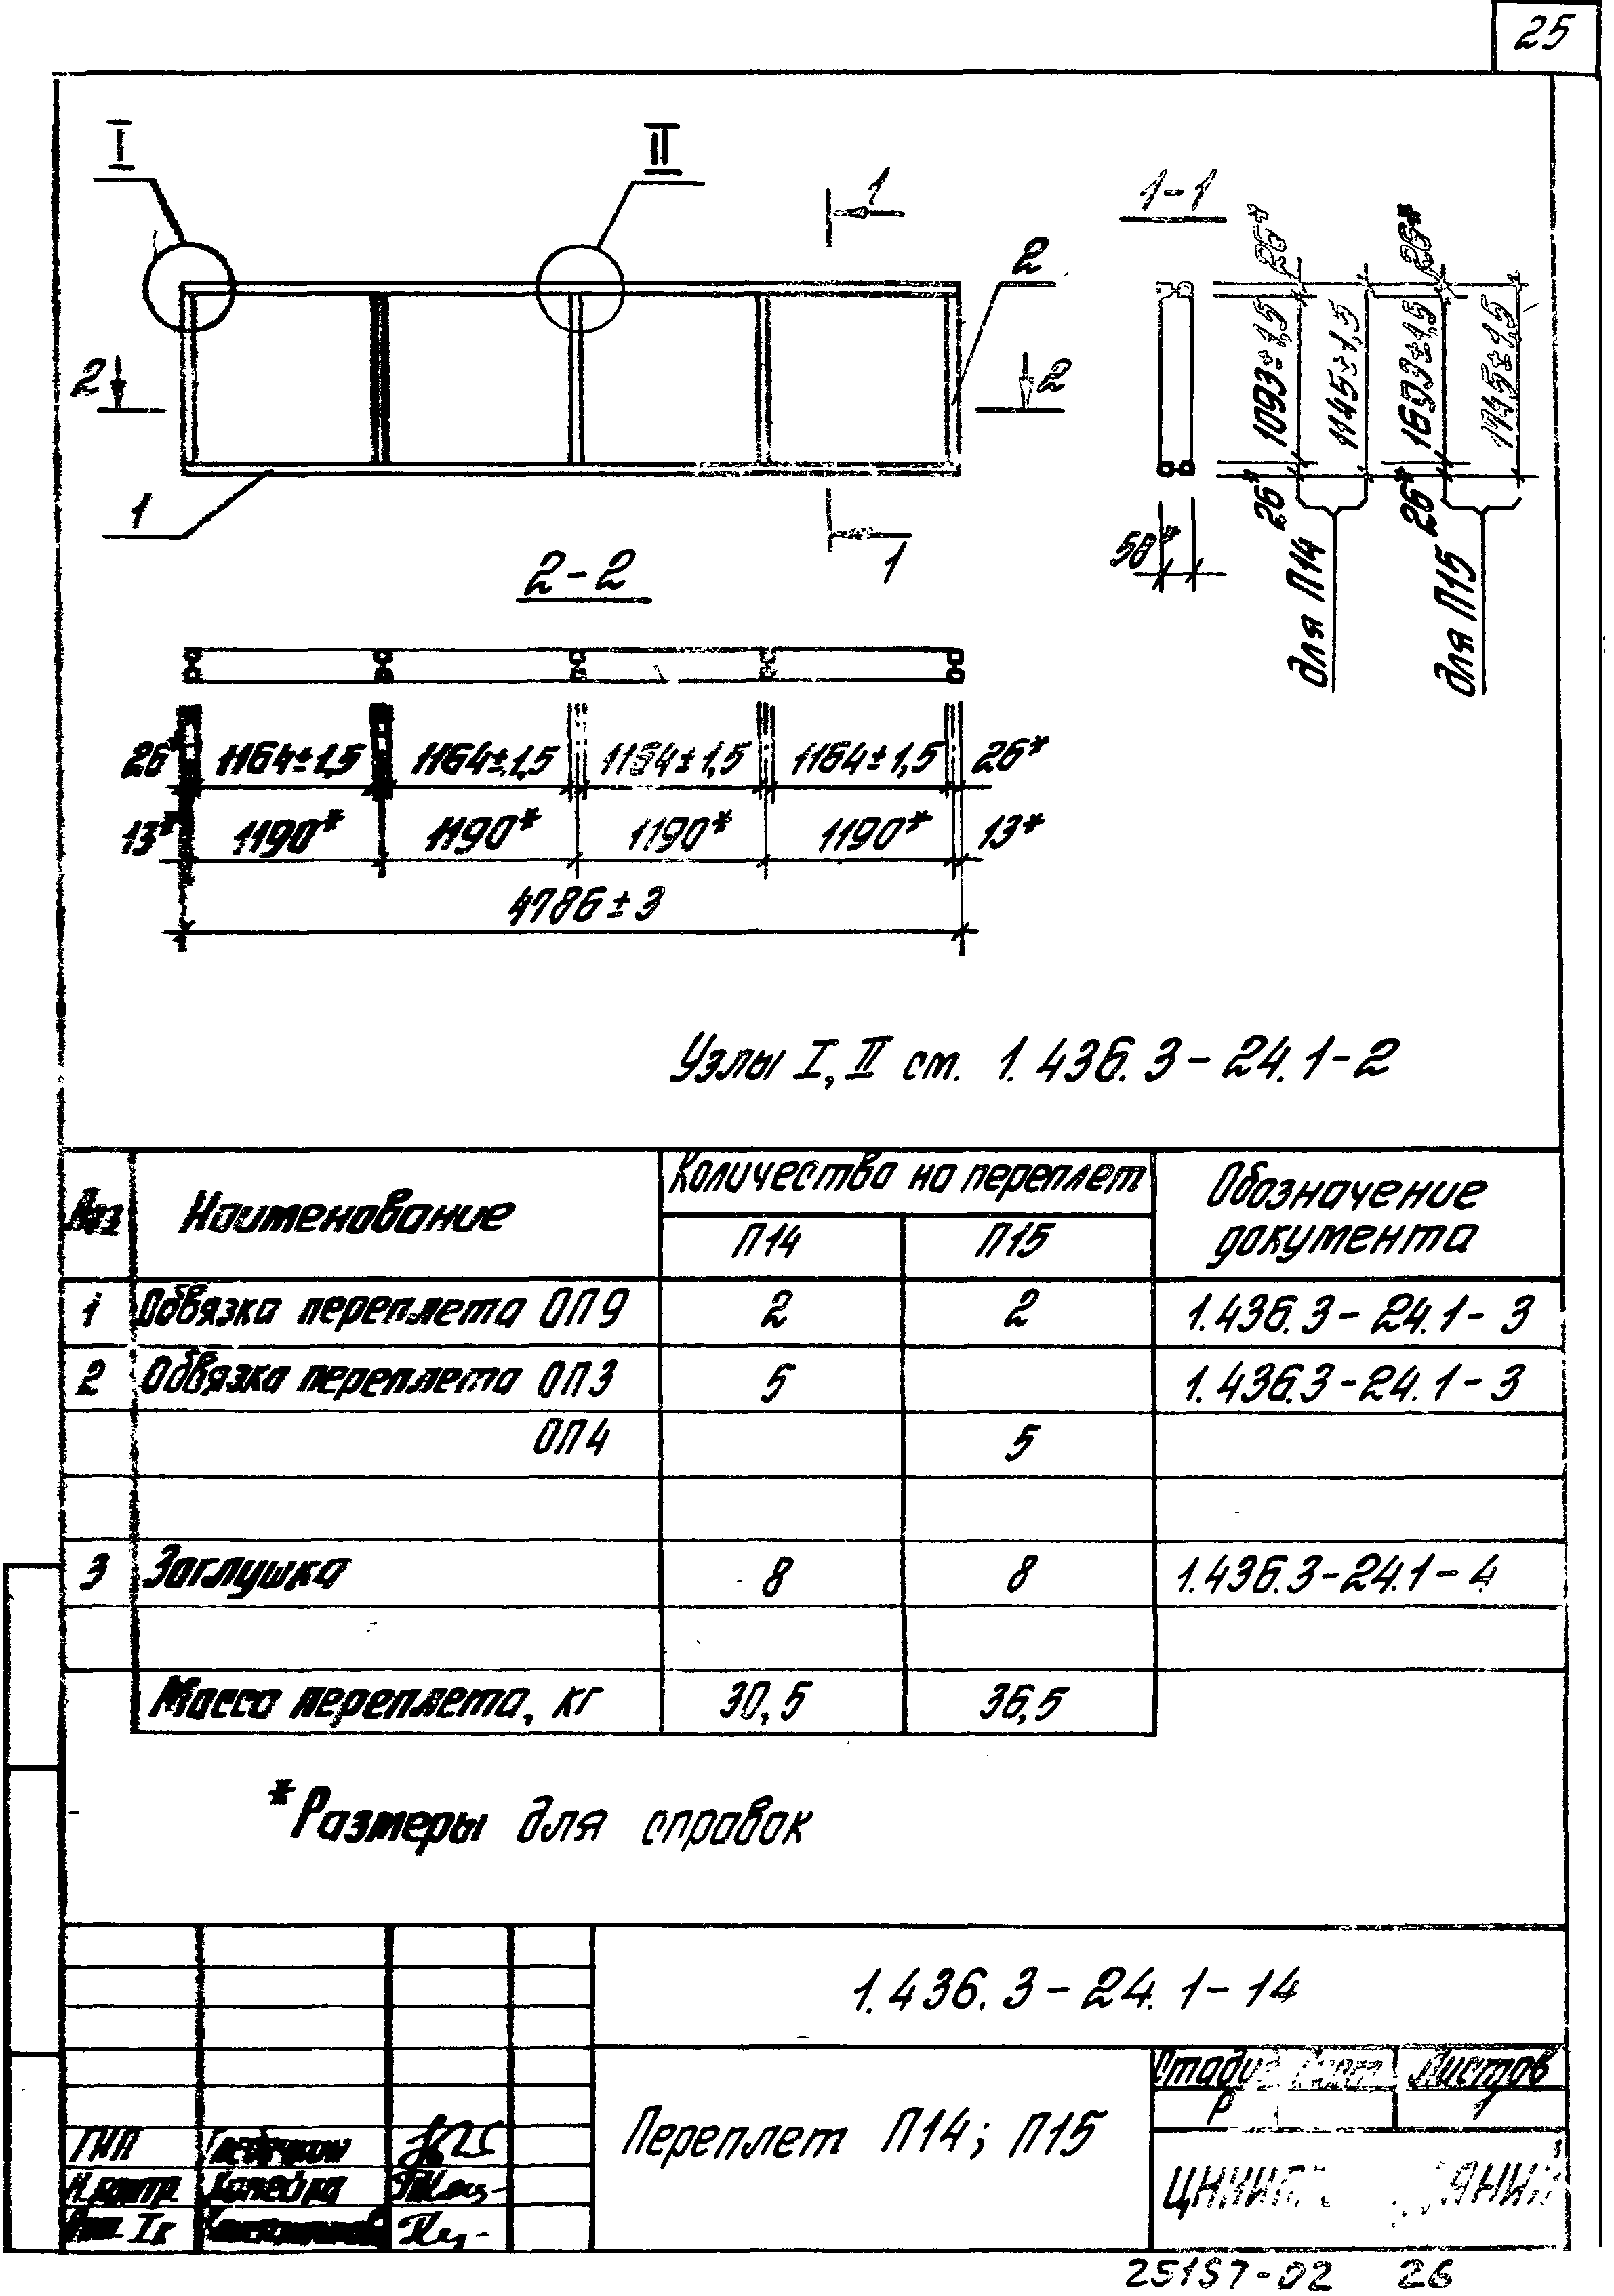 25
I
II
1
1-1
2
2
2
1
1
26*
1093±1,5
26*
1145±1,5
26*
1693±1,5
26*
1745±1,5
50*
для П14
для П15
2-2
26* 1164±1,5 1164±1,5 1164±1,5 1164±1,5 26*
13* 1190* 1190* 1190* 1190* 13*
4786±3
Узлы I, II см. 1.436.3-24.1-2
Поз Наименование Количество на переплет Обозначение документа
П14 П15
1 Обвязка переплета ОП9 2 2 1.436.3-24.1-3
2 Обвязка переплета ОП3 5 1.436.3-24.1-3
ОП4 5
3 Заглушка 8 8 1.436.3-24.1-4
Масса переплета, кг 30,5 36,5
*Размеры для справок
1.436.3-24.1-14
Переплет П14; П15
Стадия Лист Листов
Р 1
ГИП
Н.контр. Копейка
25157-02 26